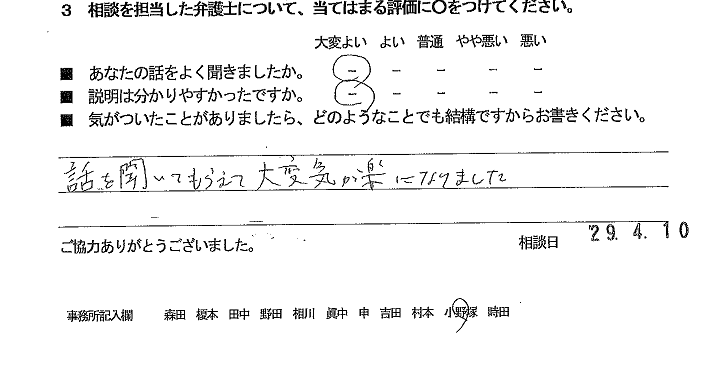 3 相談を担当した弁護士について、当てはまる評価に〇をつけてください。
大変よい よい 普通 やや悪い 悪い
■ あなたの話をよく聞きましたか。 － － － － －
■ 説明は分かりやすかったですか。 － － － － －
■ 気がついたことがありましたら、どのようなことでも結構ですからお書きください。
話を聞いてもらえて大変気が楽になりました
ご協力ありがとうございました。 相談日 29.4.10
事務所記入欄 森田 榎本 田中 野田 相川 眞中 申 吉田 村本 小野塚 時田